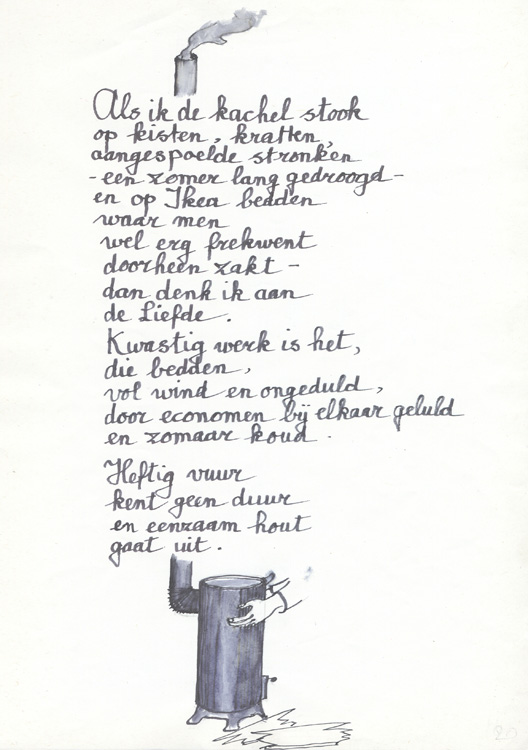 Als ik de kachel stook
op kisten, kratten,
aangespoelde stronken
- een zomer lang gedroogd -
en op Ikea bedden
waar men
wel erg frekwent
doorheen zakt -
dan denk ik aan
de Liefde.
Kwastig werk is het,
die bedden,
vol wind en ongeduld,
door economen bij elkaar geluld
en zomaar koud.
Heftig vuur
kent geen duur
en eenzaam hout
gaat uit.